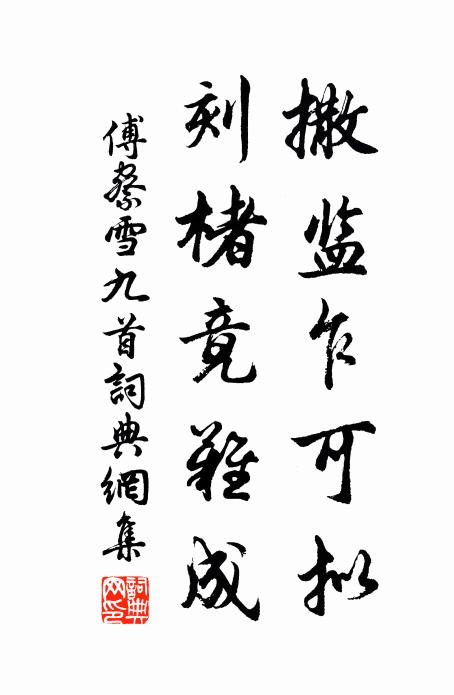 撒监乍可拟
刻楮竟难成
傅察雪九首詞典網集
詞典网印